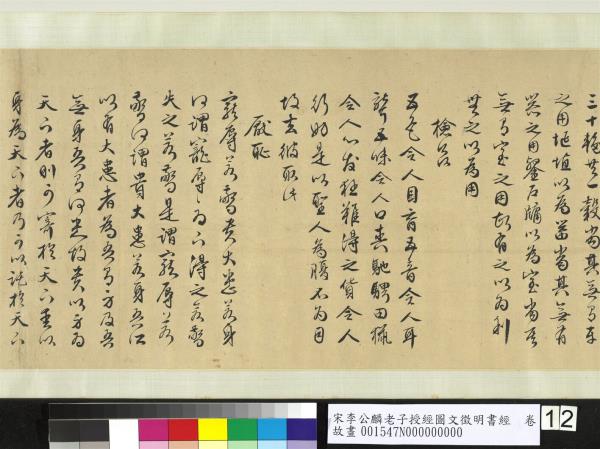 三十輻共一轂當其無有車
之用埏埴以為器當其無有
器之用鑿戶牖以為室當其
無有室之用故有之以為利
無之以為用
檢欲
五色令人目盲五音令人耳
聾五味令人口爽馳騁田獵
令人心發狂難得之貨令人
行妨是以聖人為腹不為目
故去彼取此
厭恥
寵辱若驚貴大患若身
何謂寵辱為下得之若驚
失之若驚是謂寵辱若
驚何謂貴大患若身吾所
以有大患者為吾有身及吾
無身吾有何患故貴以身為
天下者則可寄於天下愛以
身為天下者乃可以託於天下
宋李公麟老子授經圖文徵明書經 卷 12
故畫 001547N000000000